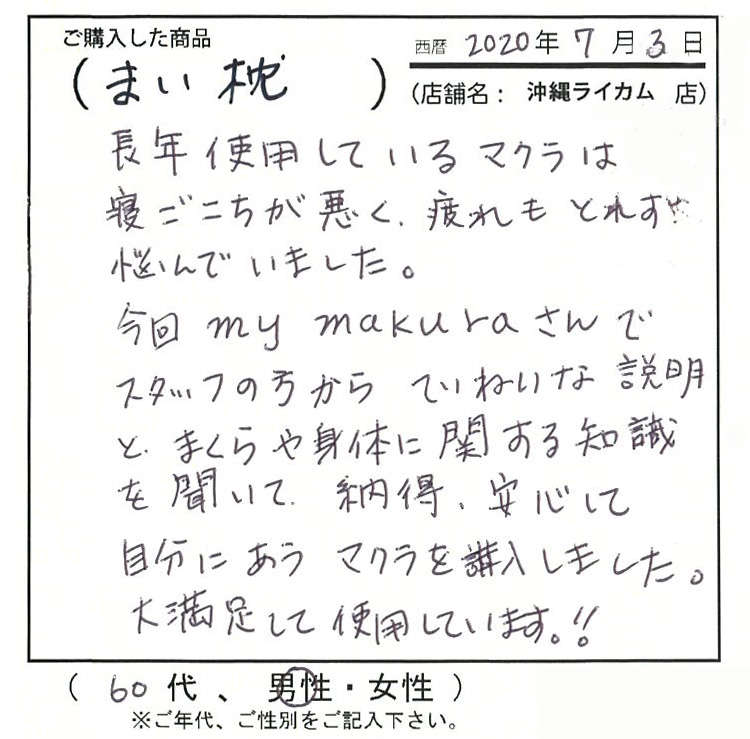 ご購入した商品
西暦 2020年 7月 3日
(まい枕 )
(店舗名: 沖縄ライカム 店)
長年使用しているマクラは
寝ごこちが悪く、疲れもとれず
悩んでいました。
今回 my makuraさんで
スタッフの方から ていねいな説明
と、まくらや身体に関する知識
を聞いて、納得、安心して
自分にあう マクラを購入しました。
大満足して使用しています。!!
( 60代、男性・女性 )
※ご年代、ご性別をご記入下さい。